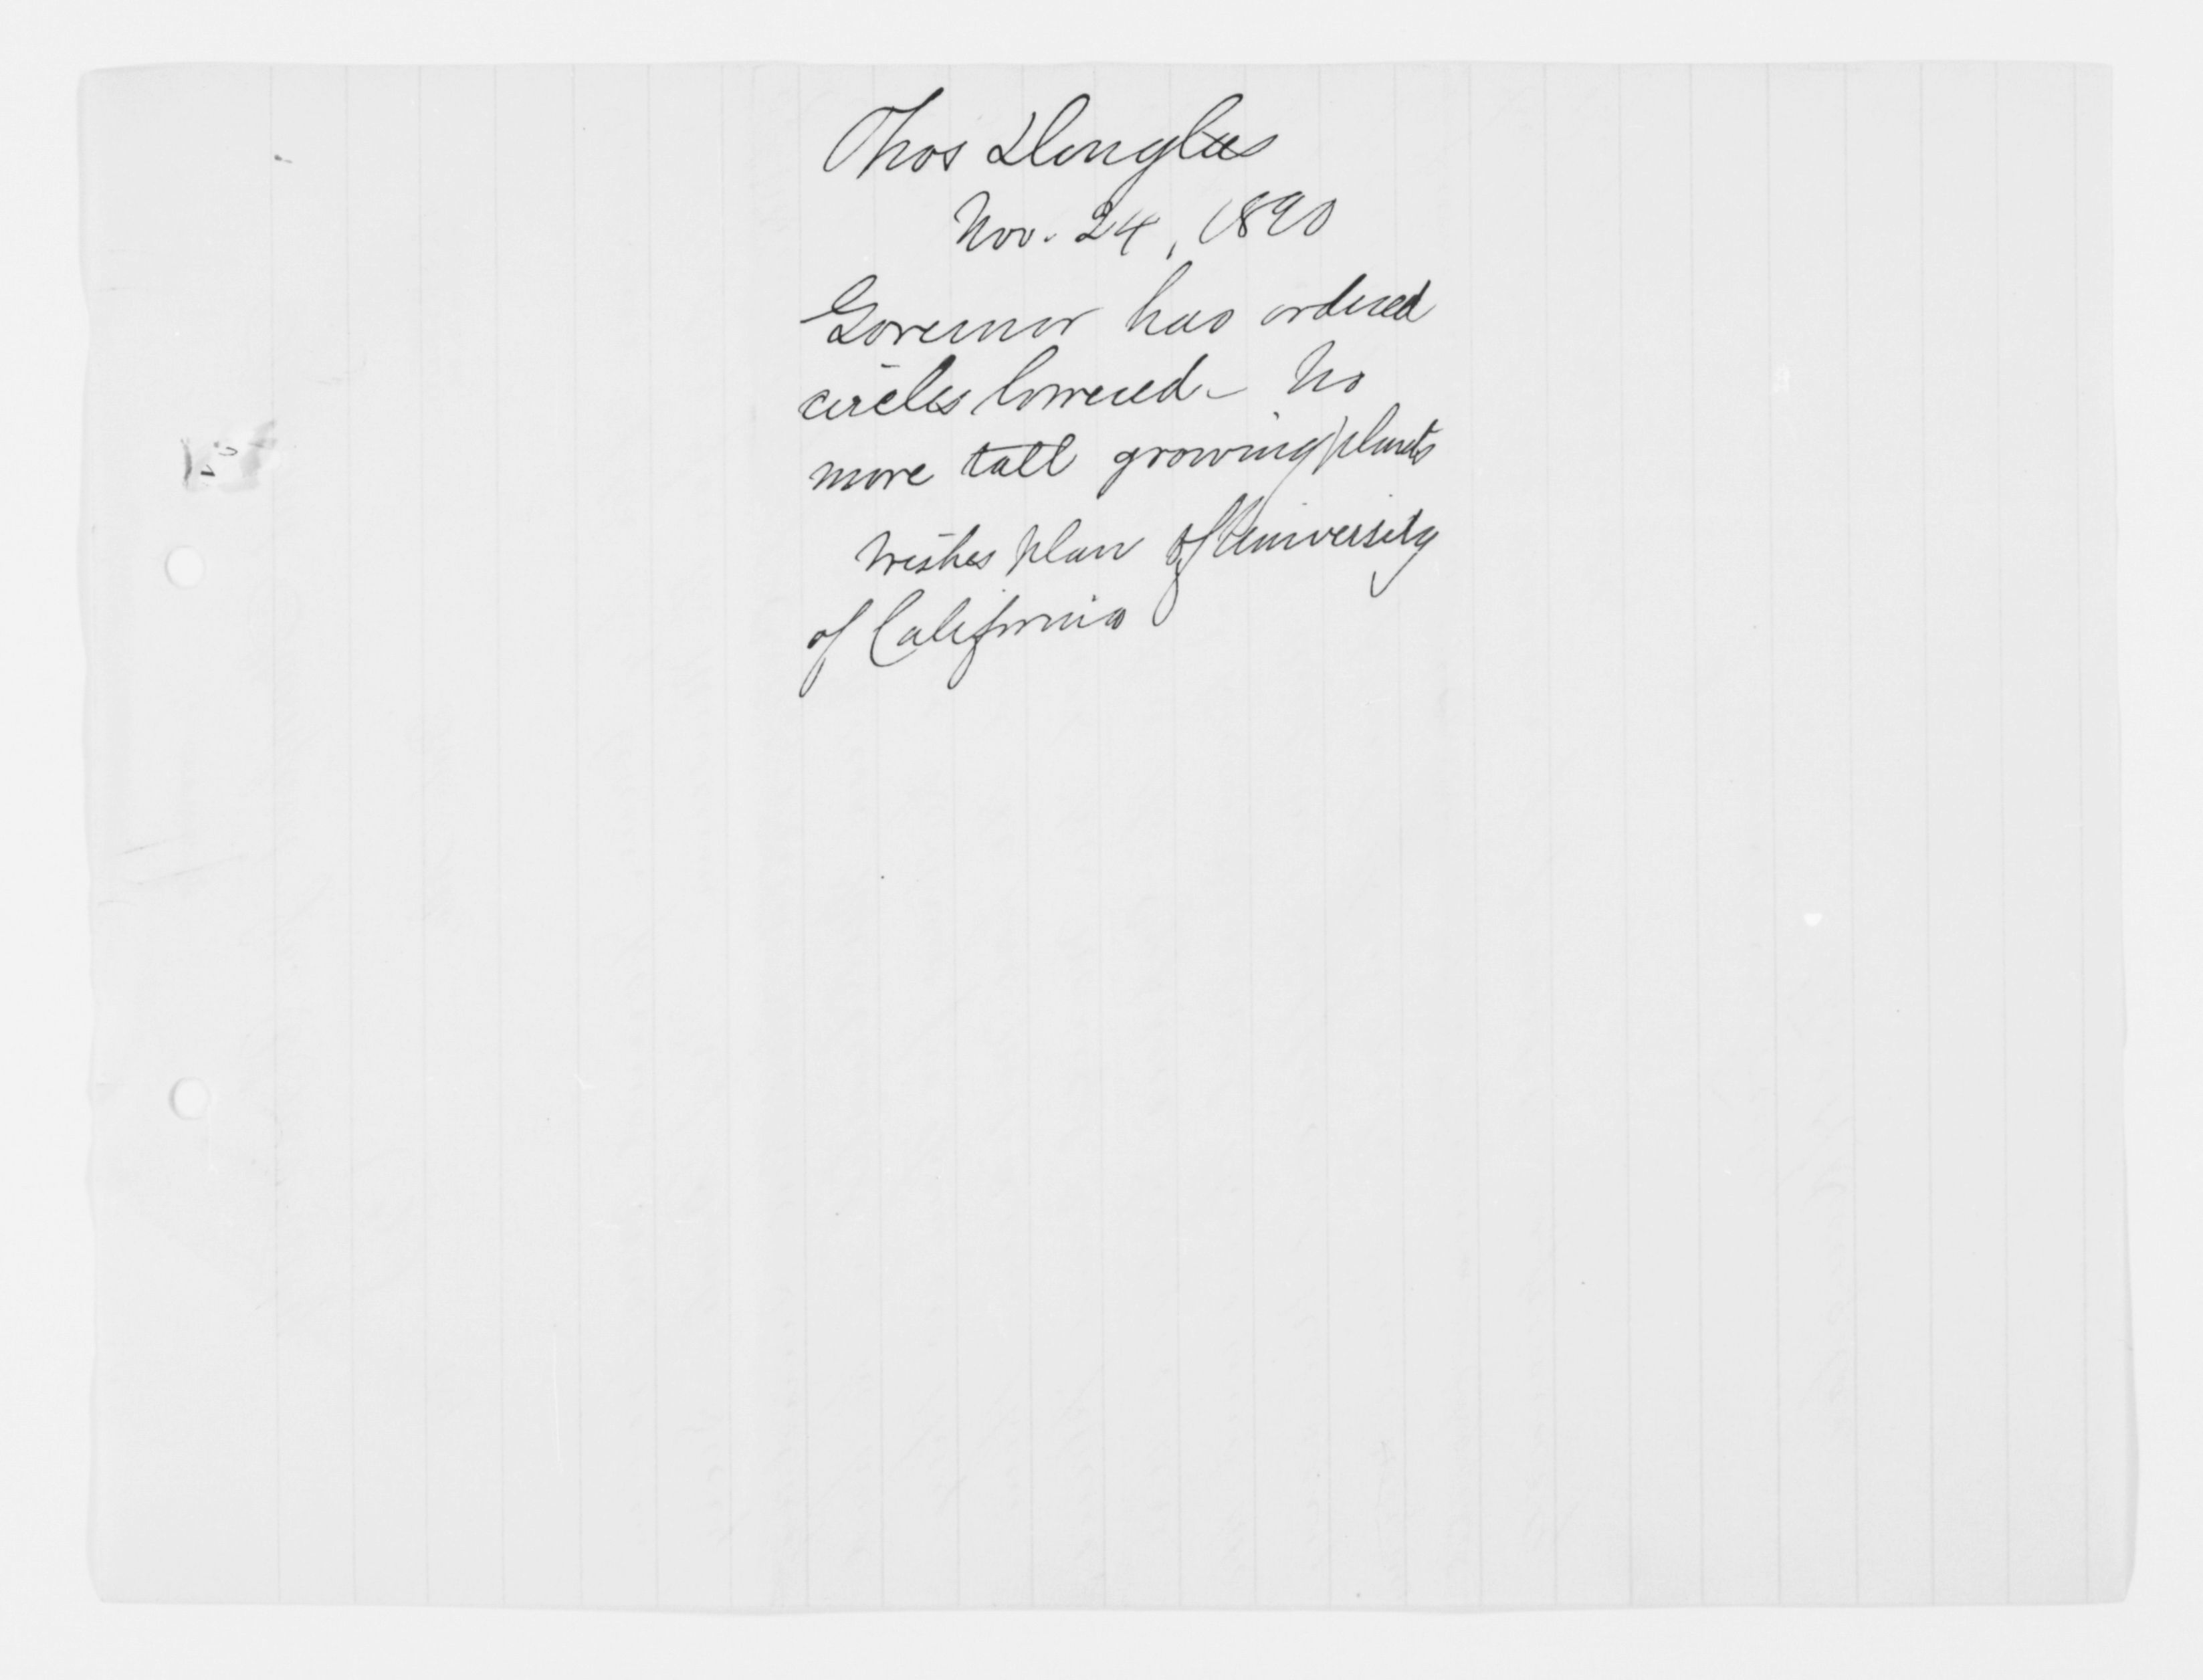 Thos Douglas
Nov. 24, 1890
Governor has ordered
circles lowered - No
more tall growing plants
Wishes plan of University
of California